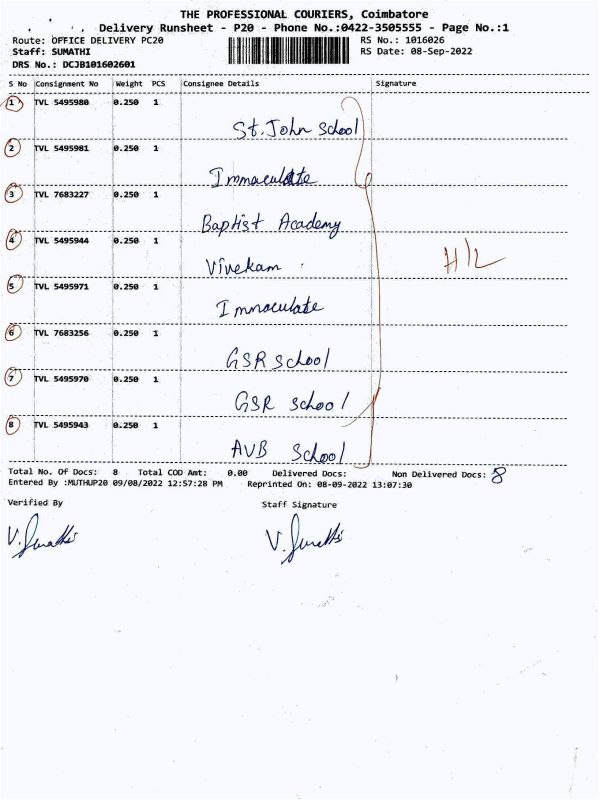 THE PROFESSIONAL COURIERS, Coimbatore
Delivery Runsheet - P20 - Phone No.:0422-3505555 - Page No.:1
Route: OFFICE DELIVERY PC20 RS No.: 1016026
Staff: SUMATHI RS Date: 08-Sep-2022
DRS No.: DCJB101602601
S No Consignment No Weight PCS Consignee Details Signature
1 TVL 5495980 0.250 1
St.John School
2 TVL 5495981 0.250 1
Immaculate
3 TVL 7683227 0.250 1
Baptist Academy
4 TVL 5495944 0.250 1
Vivekam H/L
5 TVL 5495971 0.250 1
Immaculate
6 TVL 7683256 0.250 1
GSR School
7 TVL 5495970 0.250 1
GSR School
8 TVL 5495943 0.250 1
AVB School
Total No. Of Docs: 8 Total COD Amt: 0.00 Delivered Docs: Non Delivered Docs: 8
Entered By :MUTHUP20 09/08/2022 12:57:28 PM Reprinted On: 08-09-2022 13:07:30
Verified By Staff Signature
V. Sumathi V. Sumathi